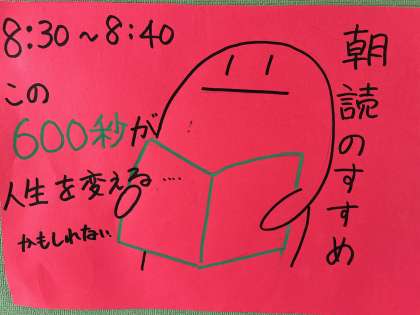 朝読のすすめ
8:30～8:40
この
600秒が
人生を変える....
かもしれない